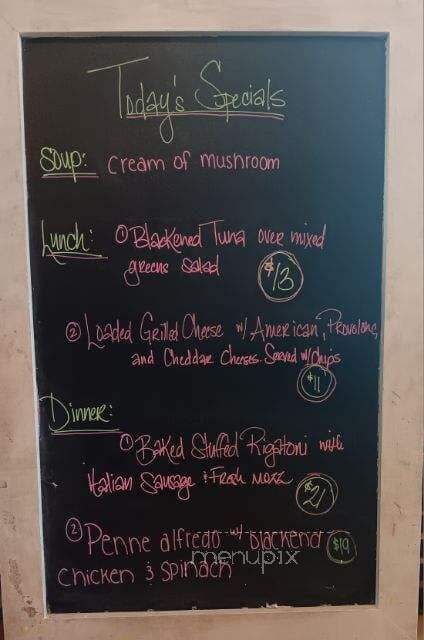 Today's Specials
Soup: Cream of mushroom
Lunch: ① Blackened Tuna over mixed
greens salad $13
② Loaded Grilled Cheese w/ American, Provolone,
and Cheddar Cheeses. Served w/ chips
$11
Dinner:
① Baked Stuffed Rigatoni with
Italian Sausage & Fresh mozz
$21
② Penne alfredo w/ blackend $19
menupix
chicken & spinach